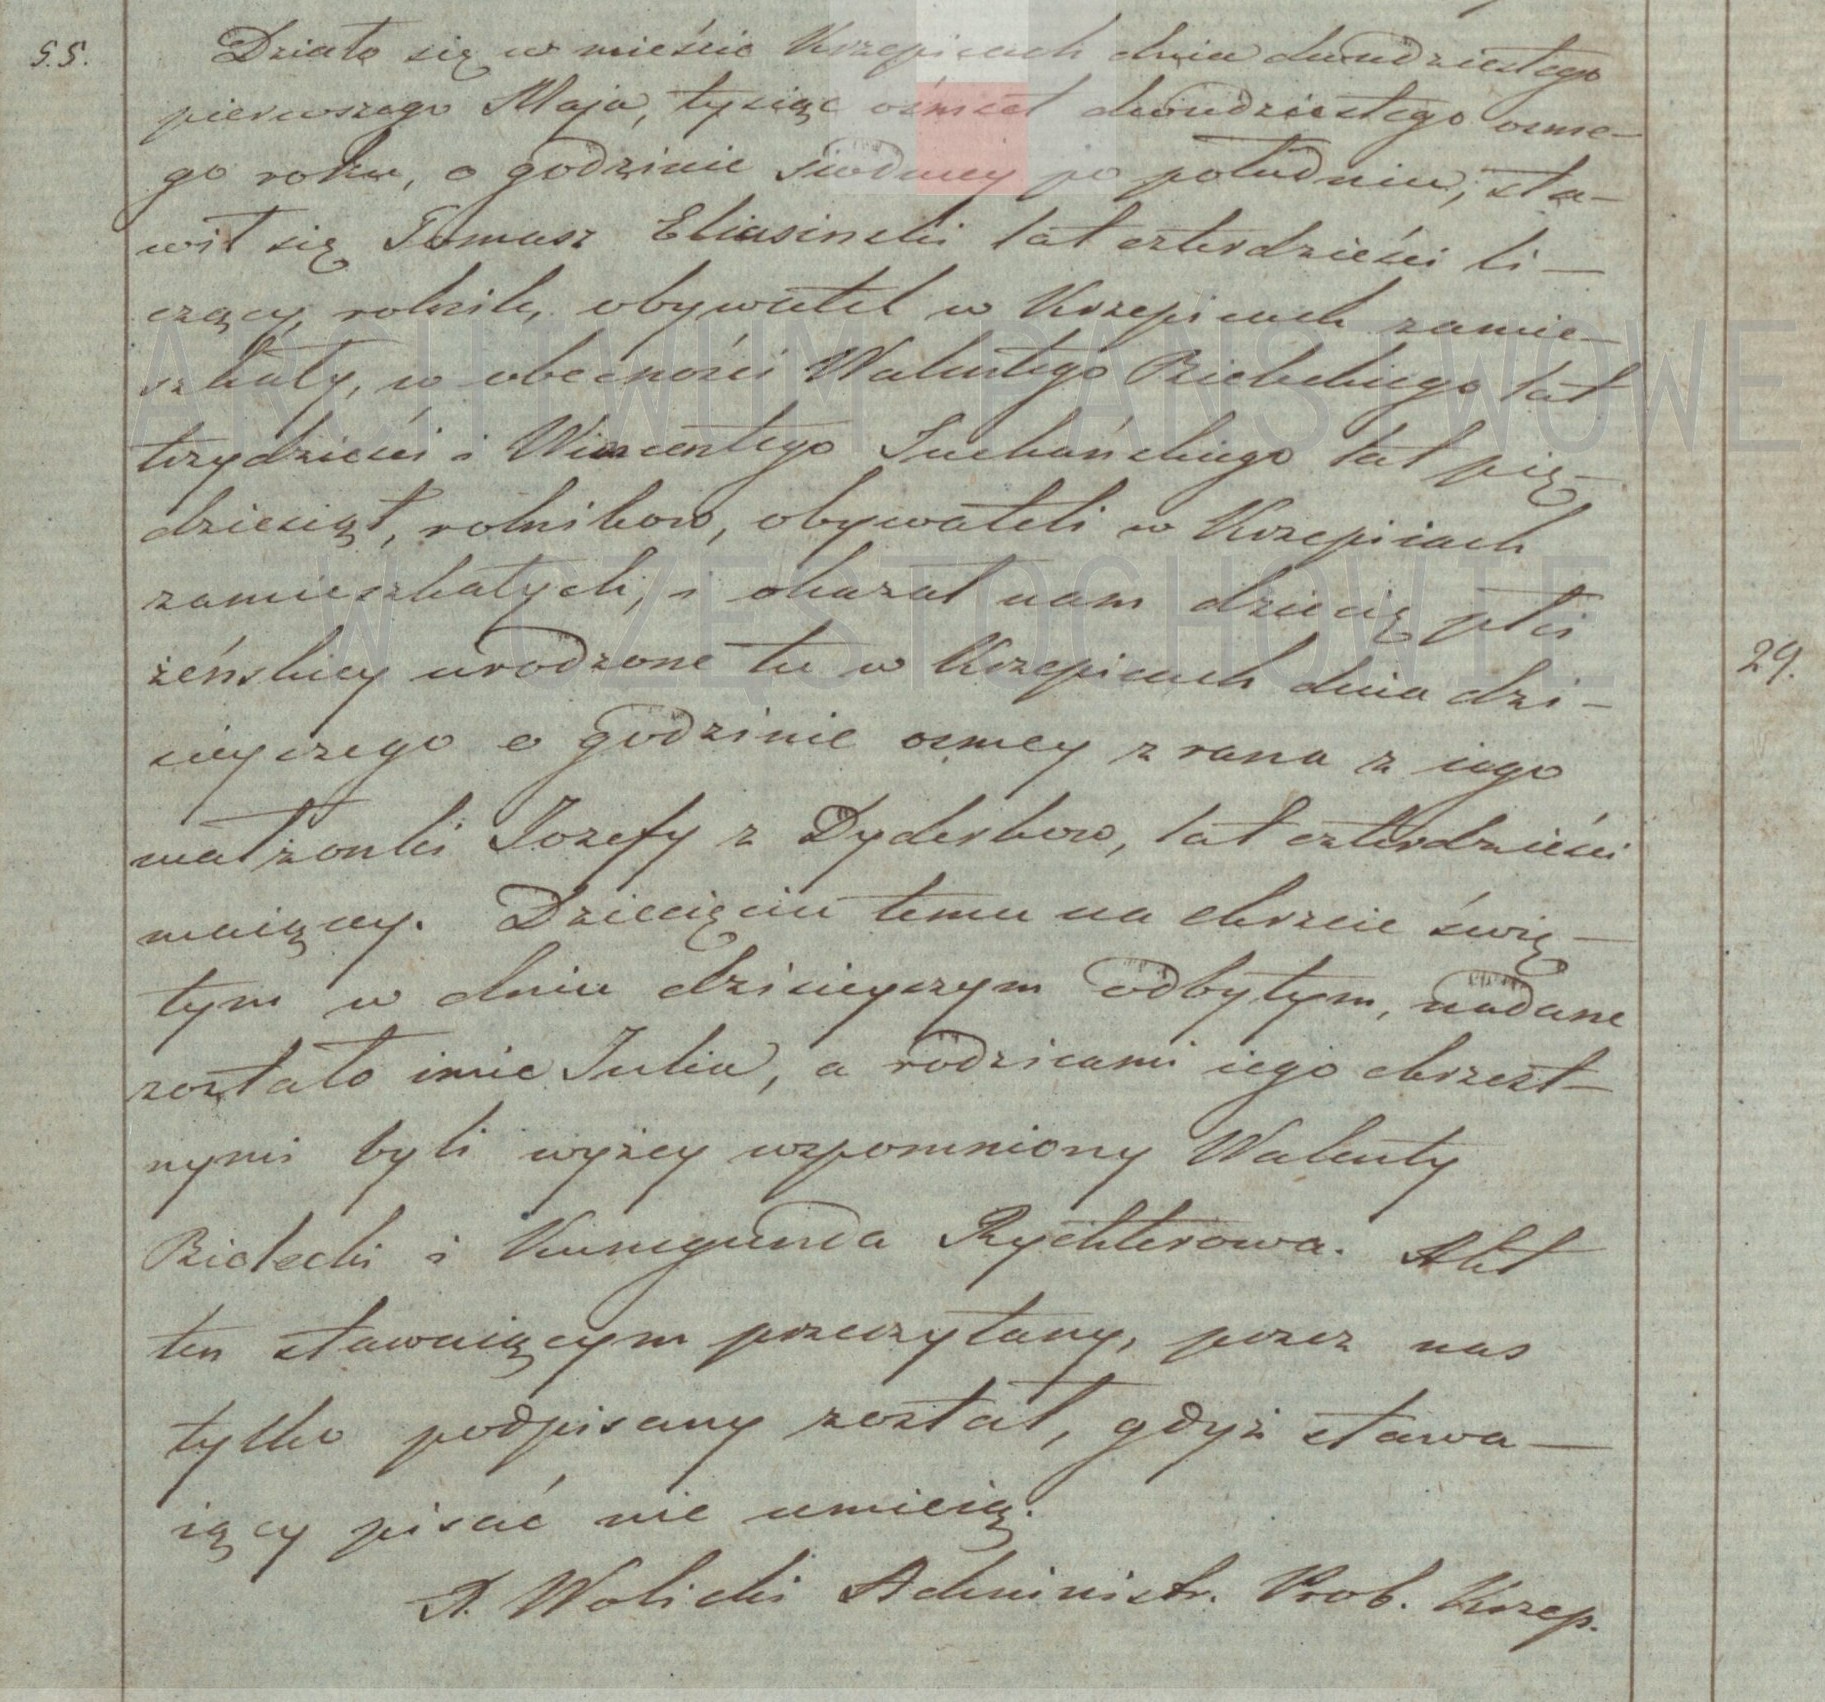 55.
Działo się w mieście Krzepicach dnia dwudziestego
pierwszego Maja, tysiąc ośmset dwudziestego osme-
go roku, o godzinie siodmey po południu, sta-
wił się Tomasz Eliasinski lat czterdzieści li-
czący, rolnik, obywatel w Krzepicach zamie-
szkały, w obecności Walentego Bieleckiego lat
trzydzieści i Wincentego Suchańskiego lat pię-
dziesiąt, rolnikow, obywateli w Krzepicach
zamieszkałych, i okazał nam dziecię płci
żeńskiey urodzone tu w Krzepicach dnia dzi-
29.
sieyszego o godzinie osmey z rana z iego
małżonki Jozefy z Dyderkow, lat czterdzieści
maiącey. Dziecięciu temu na chrzcie świę-
tym w dniu dzisieyszym odbytym, nadane
zostało imie Julia, a rodzicami iego chrzest-
nymi byli wyżey wspomniony Walenty
Bielecki i Kunegunda Rychterowa. Akt
ten stawaiącym przeczytany, przez nas
tylko podpisany został, gdyż stawa-
iący pisać nie umieią.
X. Wolicki Administr. Prob. Krzep.
ARCHIWUM PAŃSTWOWE
W CZĘSTOCHOWIE